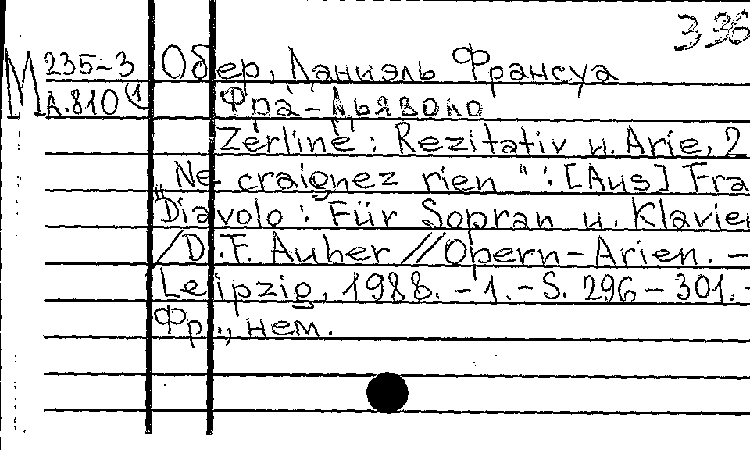 336
М 235-3 Обер, Даниэль Франсуа
А.810(1 Фра-Дьяволо
Zerline: Rezitativ u. Arie, 2
„Ne craignez rien": [Aus] Fra
Diavolo: Für Sopran u. Klavier
/D.F. Auber // Opern-Arien. -
Leipzig, 1988. - 1. - S. 296-301. -
Фр., нем.